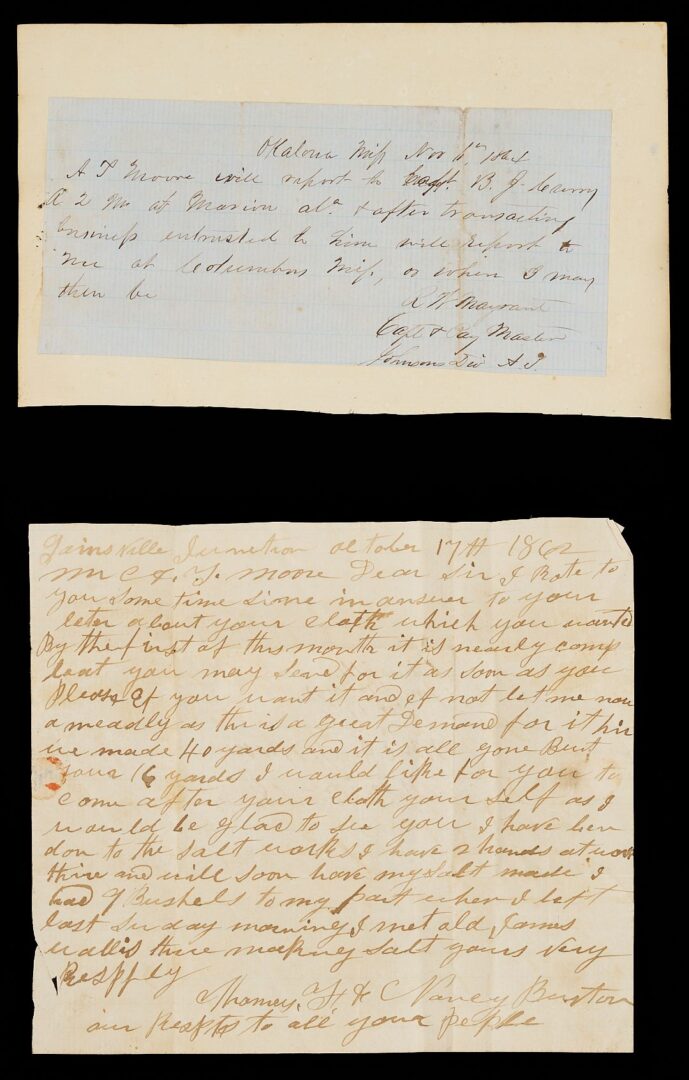 Okalona Miſs Nov 1st 1864
A T Moore will report to Capt. B. J. Curry
A 2 M at Marion Ala & after transacting
business entrusted to him will report to
me at Columbus Miſs, or where I may
then be
R W Mayrant
Capt & Pay Master
Johnsons Div A. T.
Gainsville Junction October 17th 1862
Mr C A. T. Moore Dear Sir I Rote to
you some time sinne in answer to your
leter about your cloth which you wanted
By the first of this month it is nearly comp
leat you may send for it as soon as you
Please if you want it and if not let me now
ameadly as thir is a great Demand for it hir
we made 40 yards and it is all gone But
your 16 yards I would like for you to
come after your cloth your self as I
would be glad to see you I have ben
don to the salt works I have 2 hands at work
thire and will soon have my salt made I
had 9 Bushels to my part when I left
last Sunday morning I met old James
wallis thire making salt yours very
Respfly
Thomas, H & C Nancy Burton
our Respts to all your peple